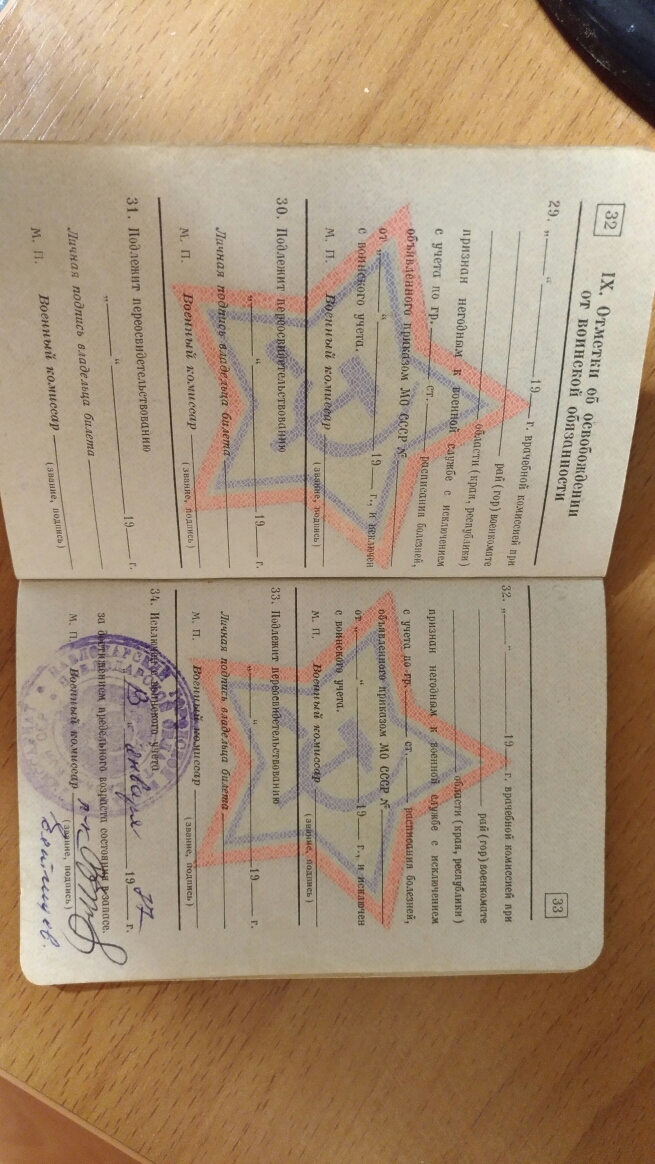 32
IX. Отметки об освобождении
от воинской обязанности
29. „___“ ___ 19__ г. врачебной комиссией при
___ рай (гор) военкомате
___ области (края, республики)
признан негодным к военной службе с исключением
с учета по гр. ___ ст. ___ расписания болезней,
объявленного приказом МО СССР № ___
от „___“ ___ 19__ г., и исключен
с воинского учета.
М. П. Военный комиссар ___
(звание, подпись)
30. Подлежит переосвидетельствованию
„___“ ___ 19__ г.
Личная подпись владельца билета ___
М. П. Военный комиссар ___
(звание, подпись)
31. Подлежит переосвидетельствованию
„___“ ___ 19__ г.
Личная подпись владельца билета ___
М. П. Военный комиссар ___
(звание, подпись)
33
32. „___“ ___ 19__ г. врачебной комиссией при
___ рай (гор) военкомате
___ области (края, республики)
признан негодным к военной службе с исключением
с учета по гр. ___ ст. ___ расписания болезней,
объявленного приказом МО СССР № ___
от „___“ ___ 19__ г., и исключен
с воинского учета.
М. П. Военный комиссар ___
(звание, подпись)
33. Подлежит переосвидетельствованию
„___“ ___ 19__ г.
Личная подпись владельца билета ___
М. П. Военный комиссар ___
(звание, подпись)
34. Исключен с воинского учета
января 1987 г.
за достижением предельного возраста состояния в запасе.
М. П. Военный комиссар п-к
(звание, подпись)